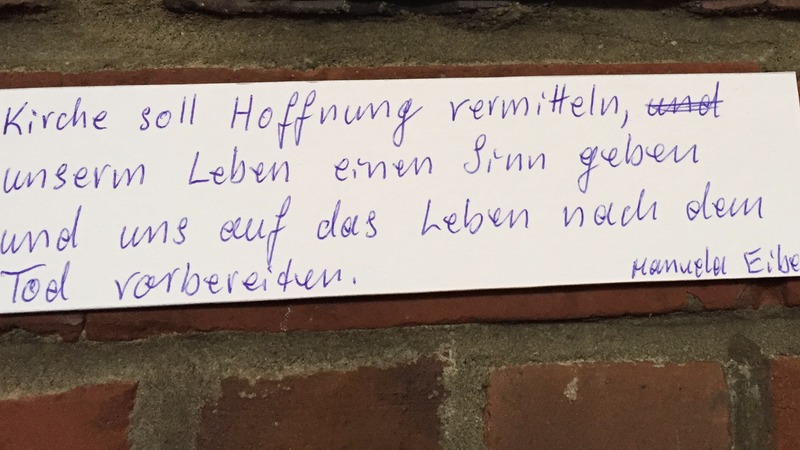 Kirche soll Hoffnung vermitteln, und
unserm Leben einen Sinn geben
und uns auf das Leben nach dem
Tod vorbereiten.
Manuela Eibe